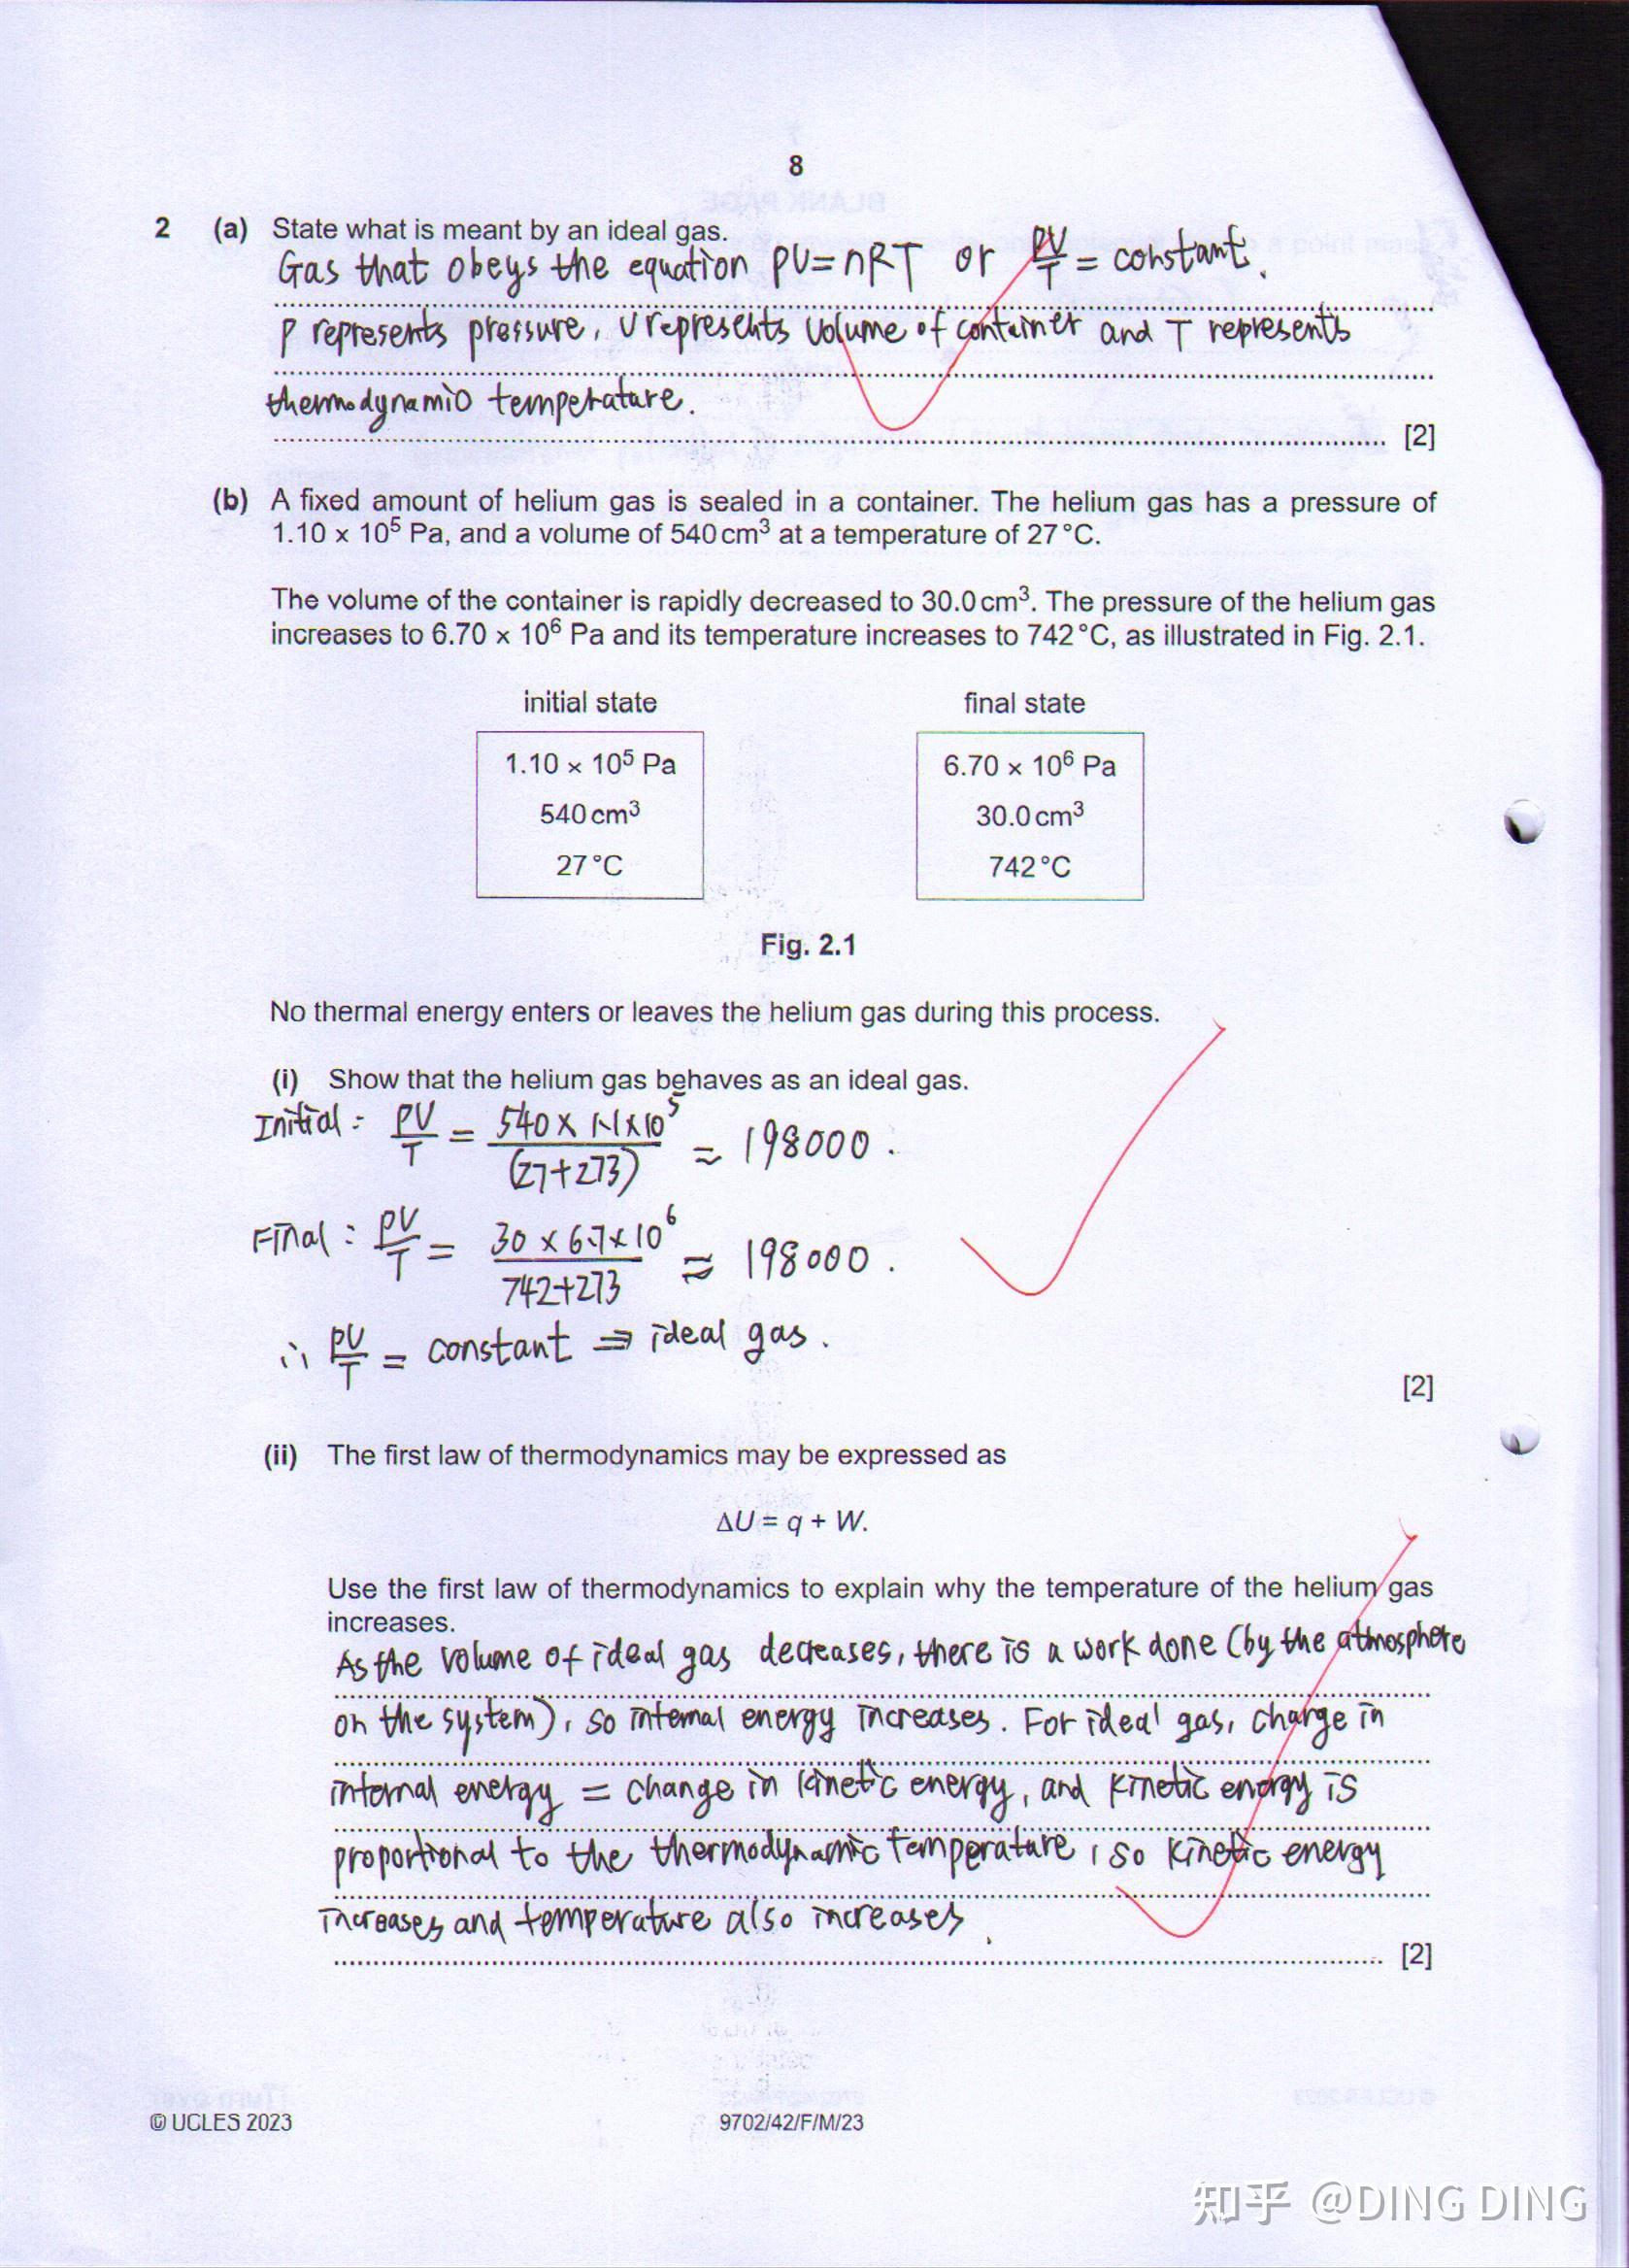 8
2 (a) State what is meant by an ideal gas.
Gas that obeys the equation PV=nRT or PV/T = constant.
P represents pressure, V represents volume of container and T represents
thermodynamic temperature.
[2]
(b) A fixed amount of helium gas is sealed in a container. The helium gas has a pressure of
1.10 × 10⁵ Pa, and a volume of 540 cm³ at a temperature of 27 °C.
The volume of the container is rapidly decreased to 30.0 cm³. The pressure of the helium gas
increases to 6.70 × 10⁶ Pa and its temperature increases to 742 °C, as illustrated in Fig. 2.1.
initial state final state
1.10 × 10⁵ Pa 6.70 × 10⁶ Pa
540 cm³ 30.0 cm³
27 °C 742 °C
Fig. 2.1
No thermal energy enters or leaves the helium gas during this process.
(i) Show that the helium gas behaves as an ideal gas.
Initial: PV/T = 540 × 1.1×10⁵/(27+273) ≈ 198000.
Final: PV/T = 30 × 6.7×10⁶/742+273 ≈ 198000.
∴ PV/T = constant ⇒ ideal gas.
[2]
(ii) The first law of thermodynamics may be expressed as
ΔU = q + W.
Use the first law of thermodynamics to explain why the temperature of the helium gas
increases.
As the volume of ideal gas decreases, there is a work done (by the atmosphere
on the system), so internal energy increases. For ideal gas, change in
internal energy = change in kinetic energy, and kinetic energy is
proportional to the thermodynamic temperature, so kinetic energy
increases and temperature also increases.
[2]
© UCLES 2023 9702/42/F/M/23
知乎 @DING DING